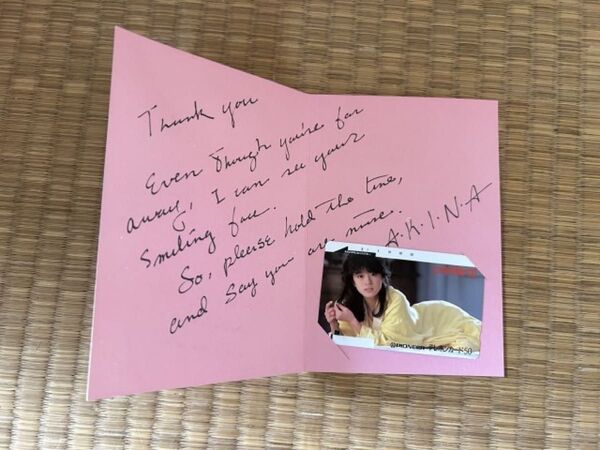 Thank you
Even though you're far
away, I can see your
smiling face.
So, please hold the line,
and say you are mine.
A・K・I・N・A
PIONEER テレホンカード50